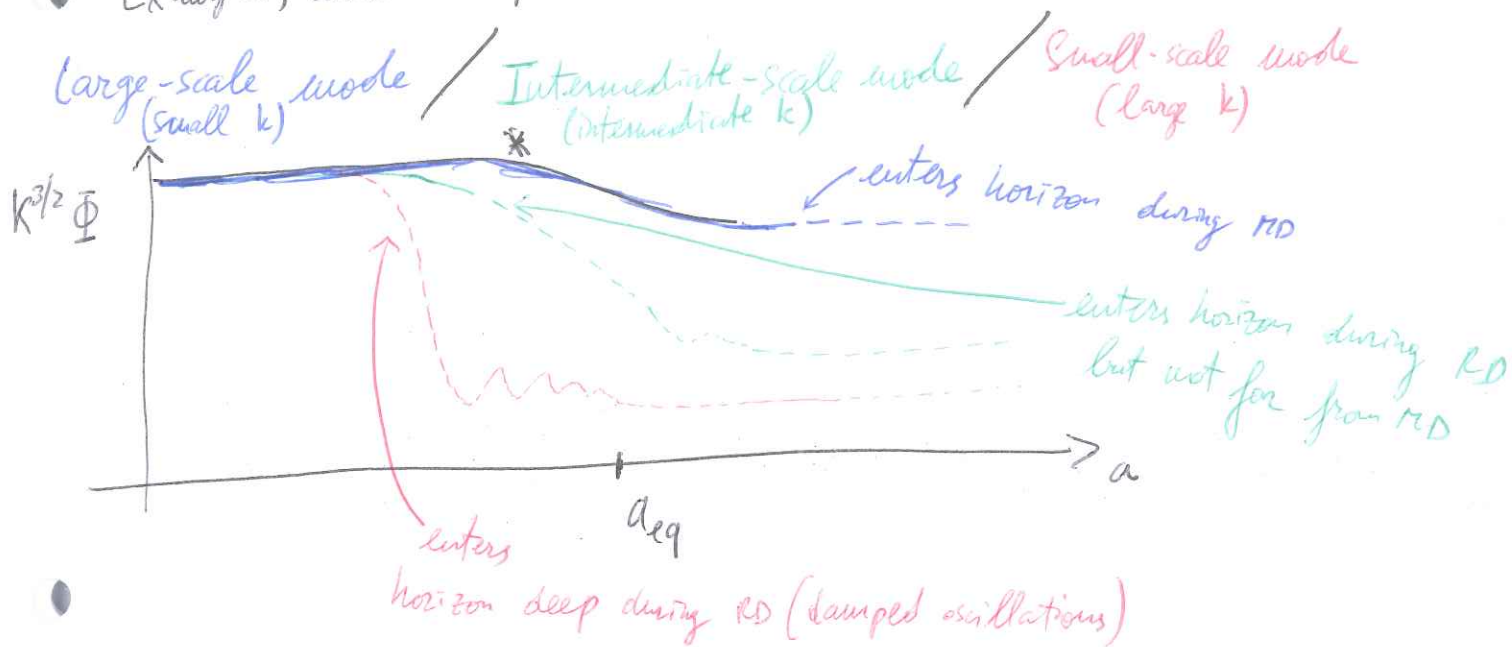 Large-scale mode / Intermediate-scale mode / Small-scale mode
(small k) (intermediate k) (large k)
*
K^{3/2} Φ
enters horizon during MD
enters horizon during RD
but not far from MD
a
a_eq
enters
horizon deep during RD (damped oscillations)